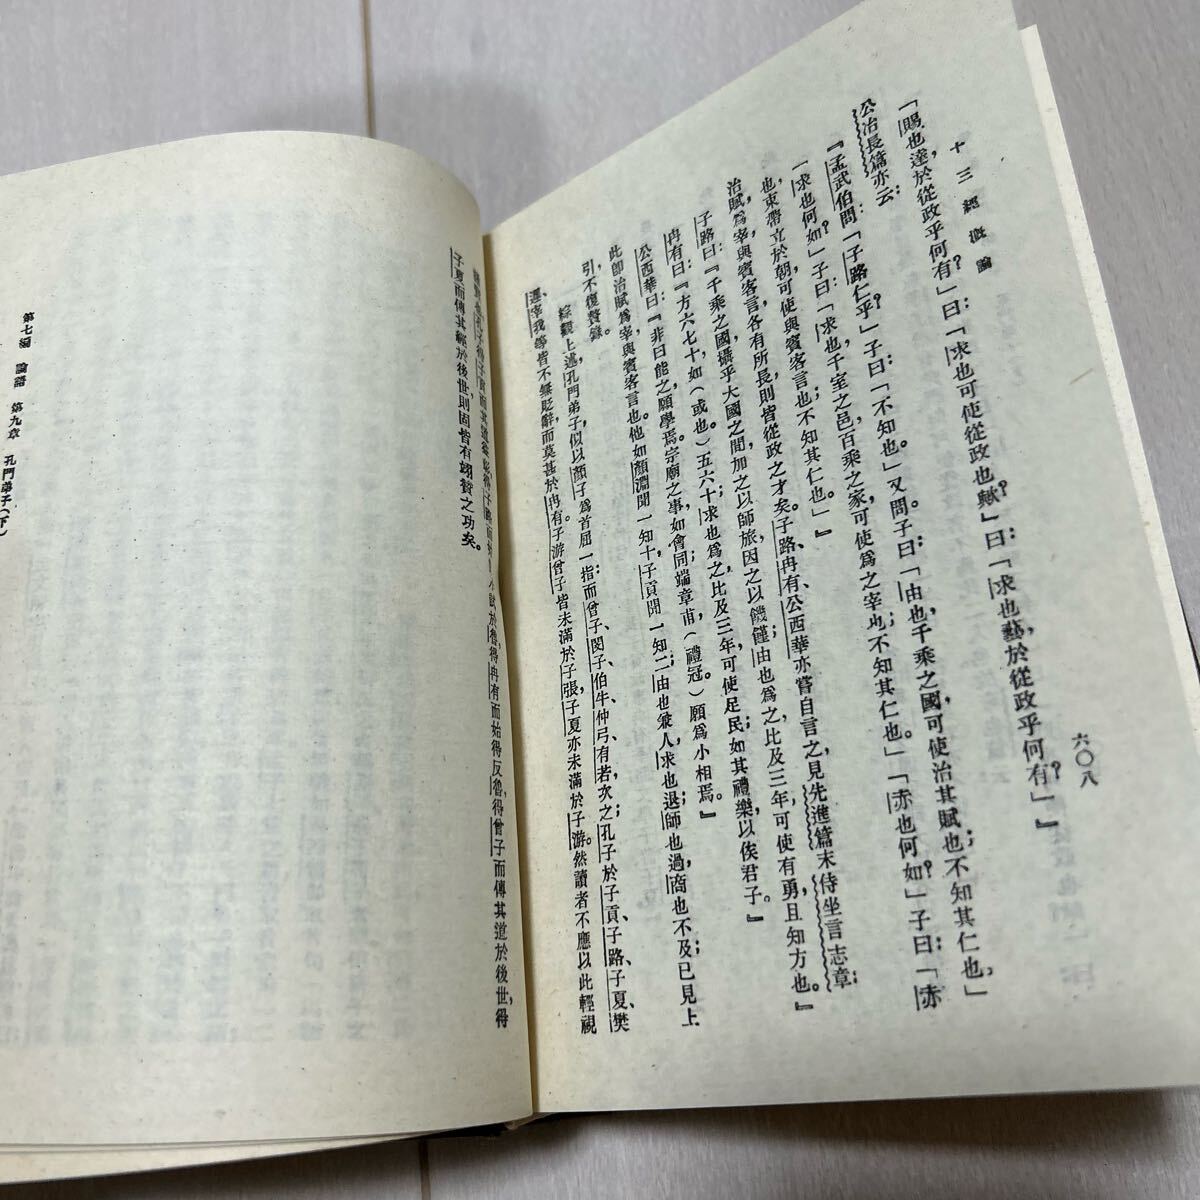 十三經概論
六〇八
「賜也達，於從政乎何有？」曰：「求也可使從政也歟？」曰：「求也藝，於從政乎何有？」』
公冶長篇亦云：
『孟武伯問：「子路仁乎？」子曰：「不知也。」又問。子曰：「由也，千乘之國，可使治其賦也；不知其仁也。」
「求也何如？」子曰：「求也，千室之邑，百乘之家，可使爲之宰也；不知其仁也。」「赤也何如？」子曰：「赤
也，束帶立於朝，可使與賓客言也；不知其仁也。」』
治賦，爲宰，與賓客言，各有所長，則皆從政之才矣。子路、冉有、公西華亦嘗自言之，見先進篇末侍坐言志章：
子路曰：『千乘之國，攝乎大國之間，加之以師旅，因之以饑饉；由也爲之，比及三年，可使有勇，且知方也。』
冉有曰：『方六七十，如（或也。）五六十，求也爲之，比及三年，可使足民；如其禮樂，以俟君子。』
公西華曰：『非曰能之，願學焉。宗廟之事，如會同，端章甫（禮冠。）願爲小相焉。』
此卽治賦，爲宰，與賓客言也。他如顏淵聞一知十，子貢聞一知二；由也兼人，求也退；師也過，商也不及；已見上
引，不復贅錄。
綜觀上述，孔門弟子似以顏子爲首屈一指；而曾子、閔子、伯牛、仲弓、有若次之；孔子於子貢、子路、子夏、樊
遲、宰我等皆不無貶辭，而莫甚於冉有；子游、曾子皆未滿於子張，子夏亦未滿於子游。然讀者不應以此輕視
小試於魯，得冉有而始得反魯，得曾子而傳其道於後世，得
子夏而傳其經於後世，則固皆有翊贊之功矣。
第七編 論語 第九章 孔門弟子（下）